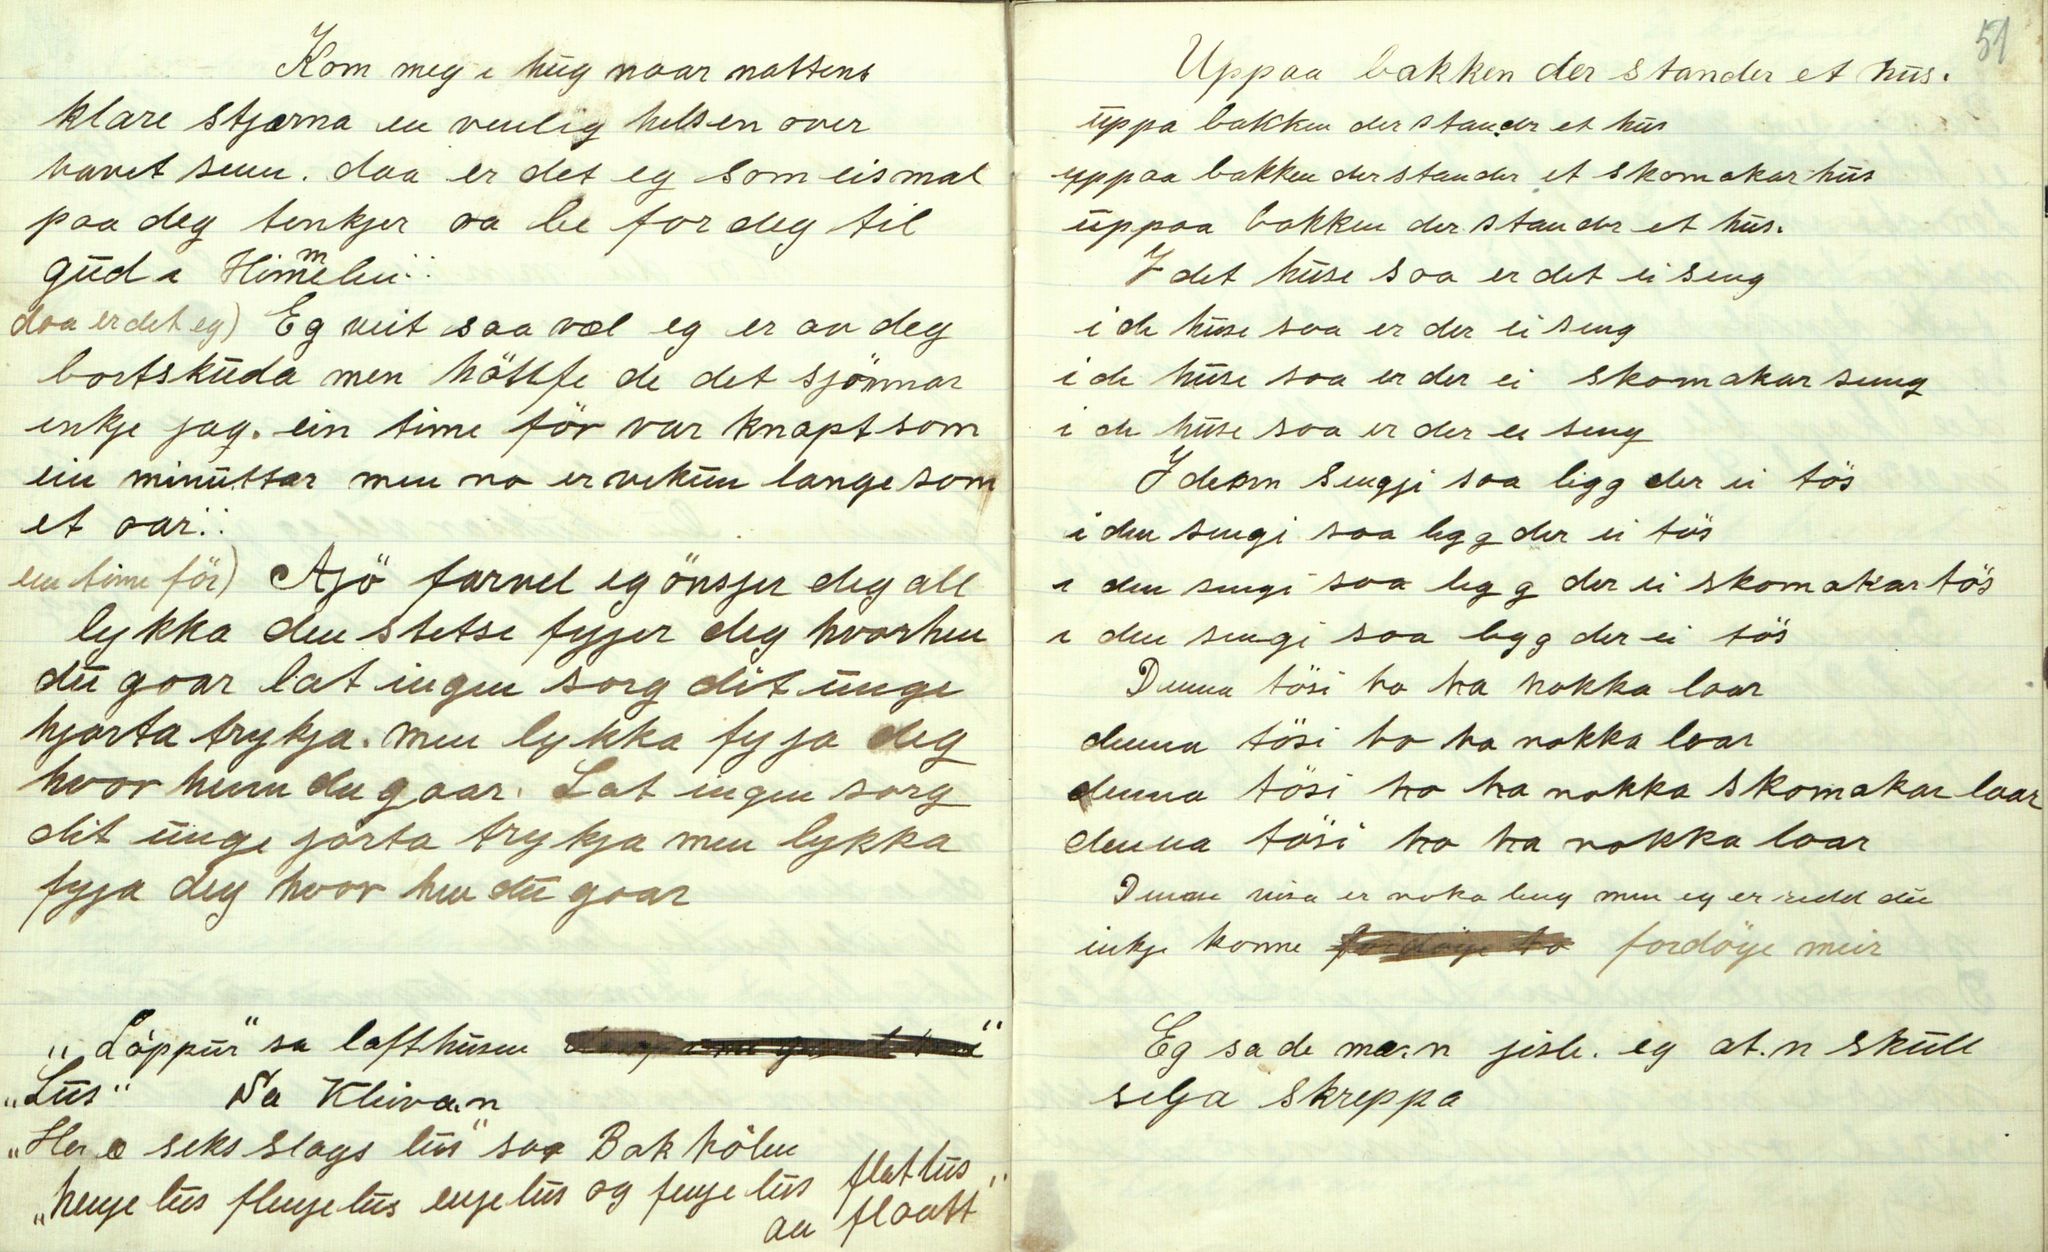 Kom meg i hug naar nattens
klare stjerna en venlig helsen over
havet senn. daa er det eg som eismal
paa deg tenkjer aa be for deg til
gud i Himmelen :
daa er det eg) Eg veit saa væl eg er av deg
bortskuda men hôsse de det sjönnar
inkje jag. ein time för var knapt som
ein minuttar men no er vekun lange som
et aar :
ein time för) Ajö farvel eg önsjer deg all
lykka den stetse fyjjer deg hvorhen
du gaar lat ingen sorg dit unge
hjarta trykja. men lykka fyja deg
hvor henn du gaar. Lat ingen sorg
dit unge jarta trykja men lykka
fyja deg hvor hen du gaar
„Löppur" sa lofthusen
„Lus" Sa Kleivan
„Her e seks slags lus" saa Bakhölen
„henje lus flenje lus enje lus og fenje lus flatlus
au flaatt"
51
Uppaa bakken der stander et hus.
uppa bakken der stander et hus
uppaa bakken der stander et skomakar hus
uppaa bakken der stander et hus.
I det huse saa er det ei seng
i de huse saa er der ei seng
i de huse saa er der ei skomakar seng
i de huse saa er der ei seng
I denn sengji saa ligg der ei tös
i den sengi saa legg der ei tös
i den sengi saa legg der ei skomakar tös
i den sengi saa legg der ei tös
Denna tösi ho ha nokka laar
denna tösi ho ha nokka laar
denna tösi ho ha nokka skomakar laar
denna tösi ho ha nokka laar
Denne visa er noka leng men eg er redd du
inkje konne fordöye meir
Eg sa de ma.n jisle. eg at.n skull
selja skreppa